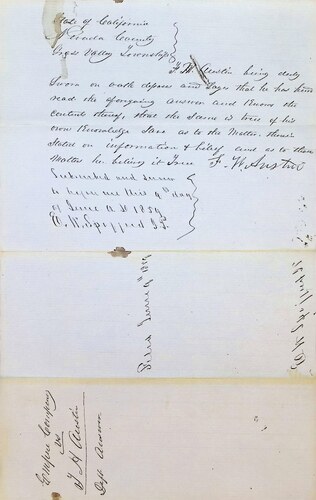 State of California
Nevada County
Grass Valley Township
F. W. Austin being duly
Sworn on oath deposes and Says that he has heard
read the foregoing answer and knows the
contents thereof, that the Same is true of his
own Knowledge Save as to the Matters therein
Stated on information & belief and as to those
Matters he believes it True F. W. Austin
Subscribed and sworn
to before me this 9th day
of June A D 1859
Filed June 9th 1859
Empire Company
vs
Austin
Answer